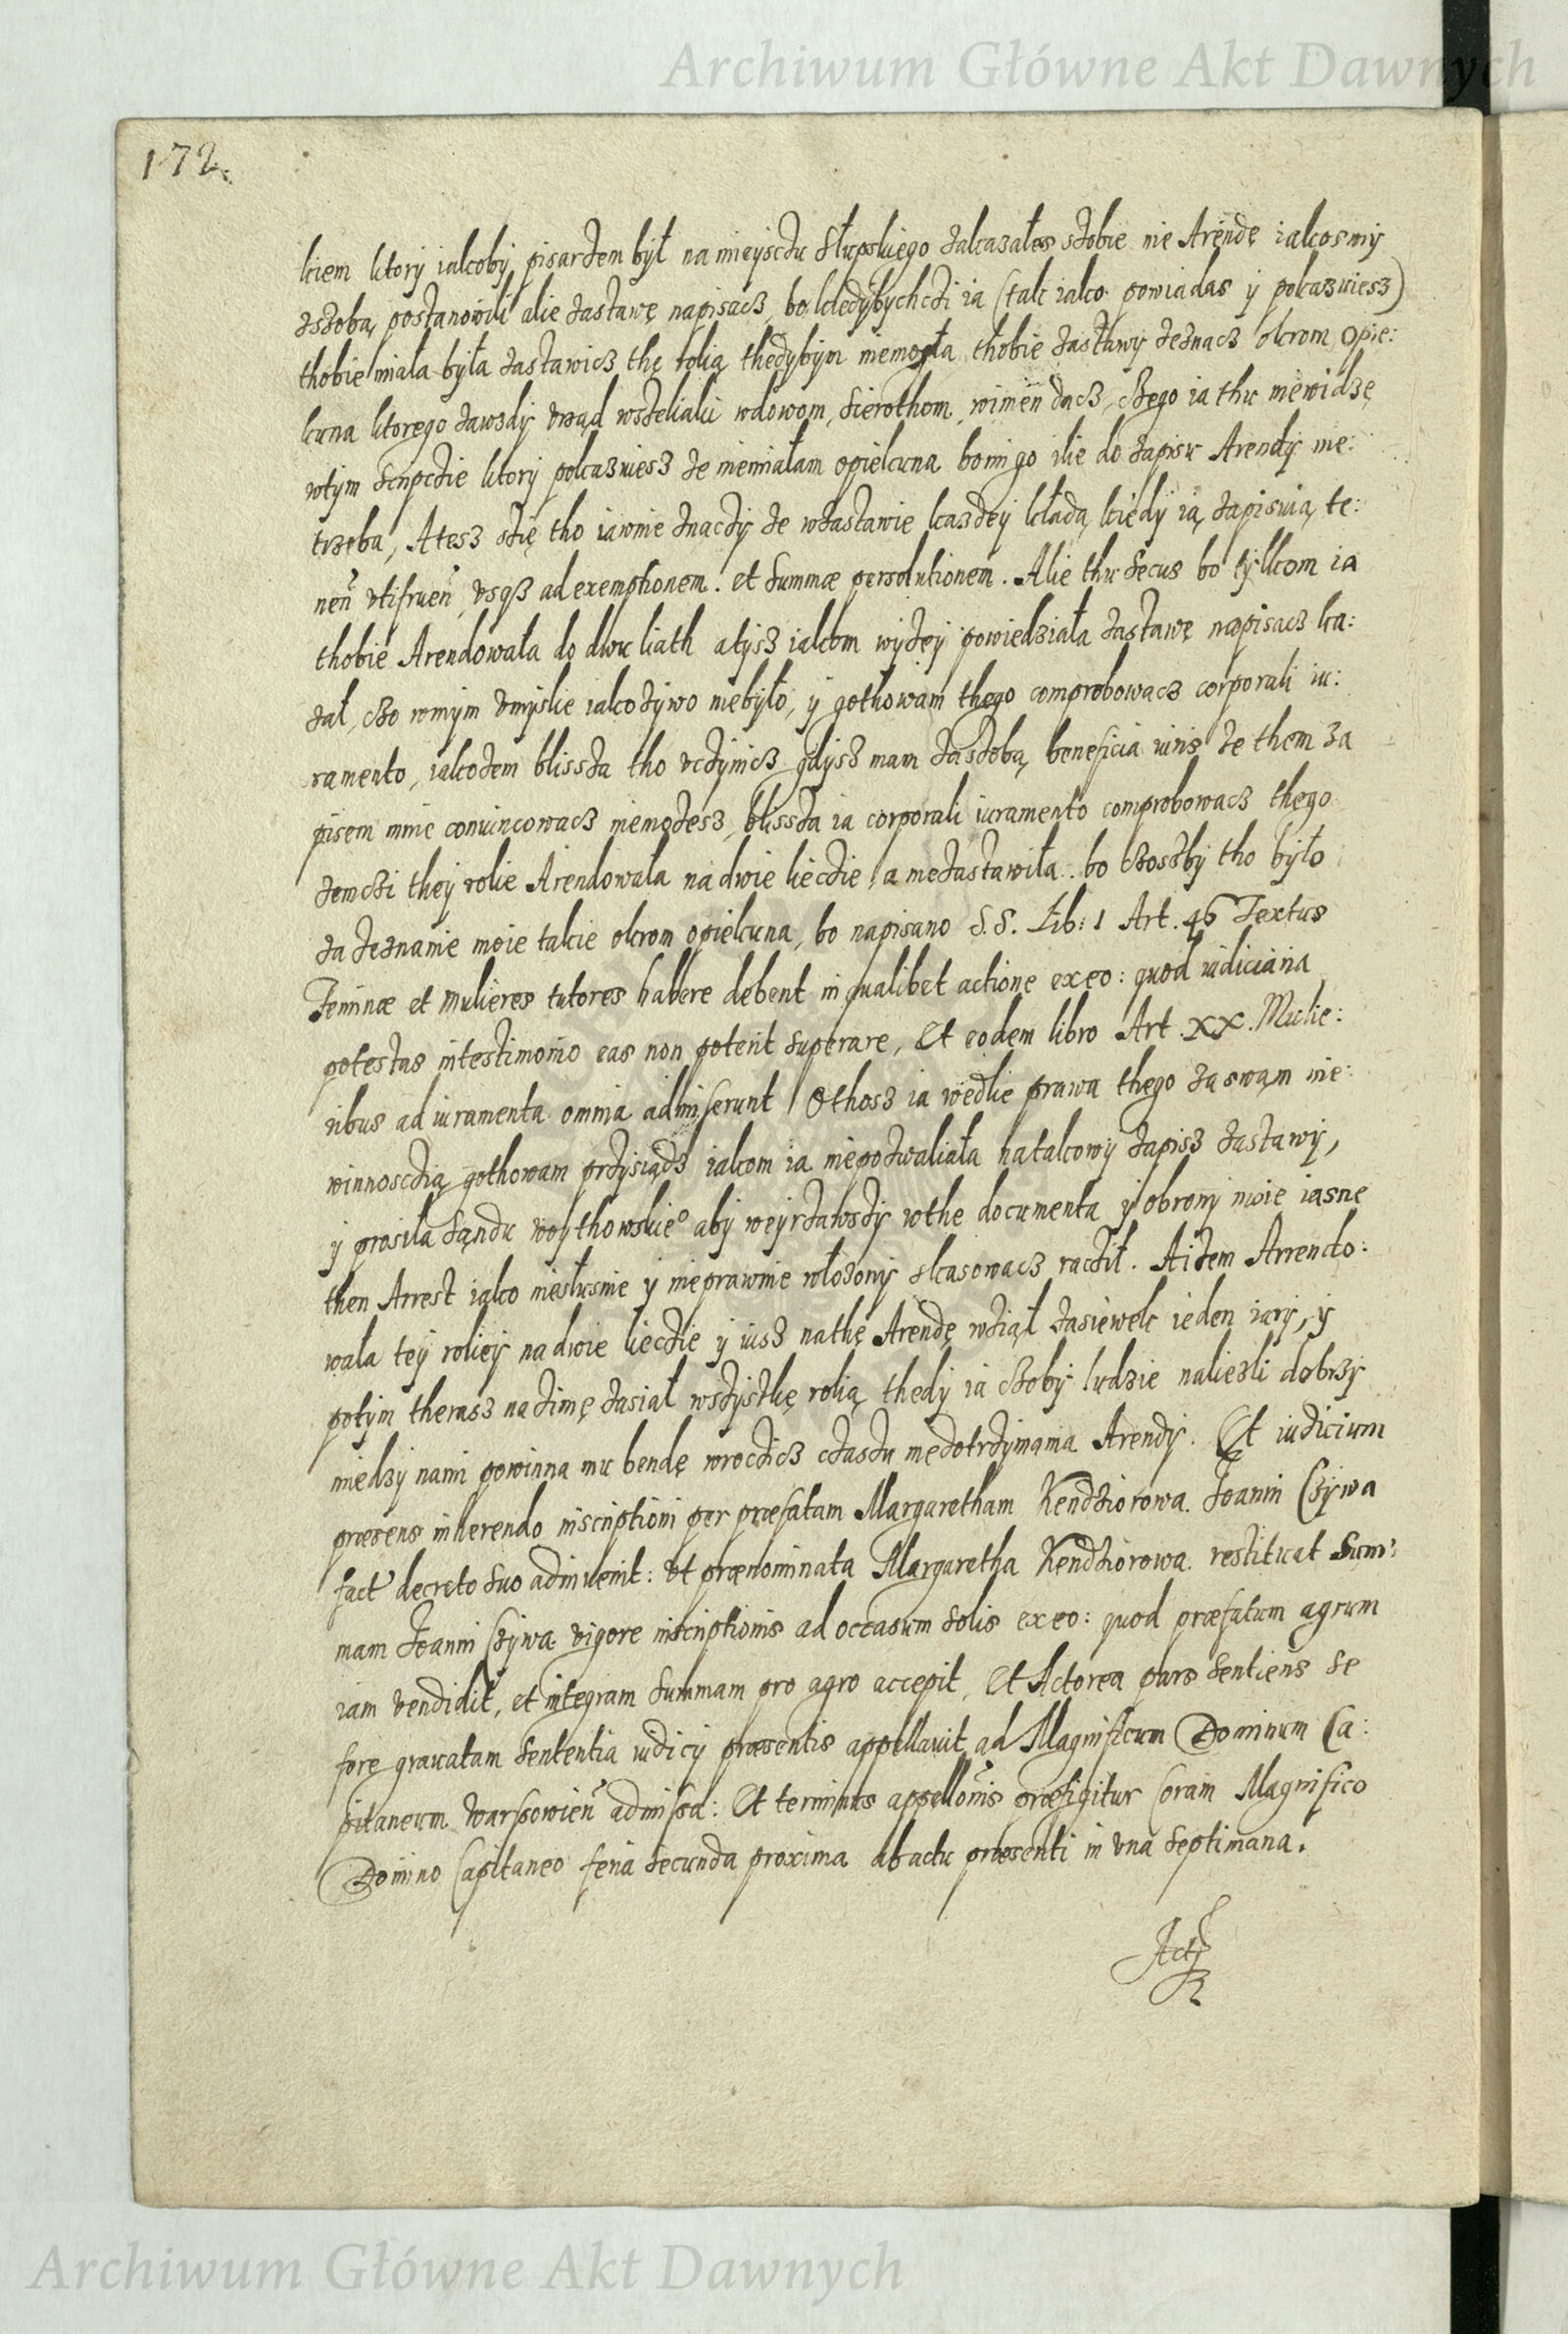 Archiwum Główne Akt Dawnych
172.
kiem ktory iakoby pisarzem był na mieyscu Słupskiego zakazałes sobie nie Arendę iakosmy
zsobą postanowili alie zastawę napisacz, bo kiedybychci ia (tak iako powiadas y pokazuiesz)
thobie miala była zastawicz thę rolią thedybym niemogła thobie zastawy zeznacz okrom opie:
kuna ktorego zawzdy vrząd wszeliaki wdowom, sierothom, winien dacz, czego ia thu niewidzę
wtym scripcie ktory pokazuiesz ze niemiałam opiekuna bo mi go ilie do zapisu Arendy nie:
trzeba, A tesz się tho iawnie znaczy ze wzastawie kazdey kładą kiedy ią zapisuią te:
neñ vtifrueñ vsqz ad exemptionem. et summæ persolutionem. Alie thu secus bo tylkom ia
thobie Arendowała do dwu liath atysz iakom wyzey powiedziała zastawę napisacz ka:
zał, czo wmym vmyslie iako zywo niebyło, y gothowam thego comprobowacz corporali iu:
ramento, iakozem blissza tho vczynicz gdysz mam zasobą beneficia iuris ze them za
pisem mnie conuincowacz niemozesz, blissza ia corporali iuramento comprobowacz thego
zemczi they rolie Arendowała na dwie liecie, a niezastawiła. bo czoszby tho było
za zeznanie moie takie okrom opiekuna, bo napisano S. S. Lib: 1 Art. 46 Textus
Feminæ et mulieres tutores habere debent in qualibet actione ex eo: quod iudiciaria
potestas in testimonio eas non poterit superare, Et eodem libro Art. XX. Mulie:
ribus ad iuramenta omnia admiserunt Othosz ia wedlie prawa thego za swąm nie:
winnosczią gothowam przysiądz iakom ia niepozwaliała na takowy zapisz zastawy,
y prosiła sąndu woythowskie° aby weyrzawszy wthe documenta y obrony moie iasne
then Arrest iako niesłusnie y nieprawnie włozony skasowacz racził. A izem Arrendo:
wała tey roliey na dwie liecie y iusz nathę Arendę wziął zasiewek ieden iary, y
potym therasz na zimę zasiał wszystkę rolią thedy ia czoby ludzie naliezli dobrzy
miedzy nami powinna mu bendę wroczicz czasu niedotrzymania Arendy. Et iudicium
præsens inherendo inscriptioni per præfatam Margaretham Kendziorowa Joanni Czywa
fact' decreto suo adinuenit: vt prænominata Margaretha Kendziorowa restituat sum:
mam Joanni Czywa vigore inscriptionis ad occasum solis ex eo: quod præfatum agrum
iam vendidit, et integram summam pro agro accepit, Et Actorea pars sentiens se
fore grauatam sententia iudicij præsentis appellauit ad Magnificum Dominum Ca:
pitaneum Warssowieñ admissa: Et terminus appellõnis præfigitur Coram Magnifico
Domino Capitaneo feria secunda proxima ab actu præsenti in vna septimana.
Archiwum Główne Akt Dawnych